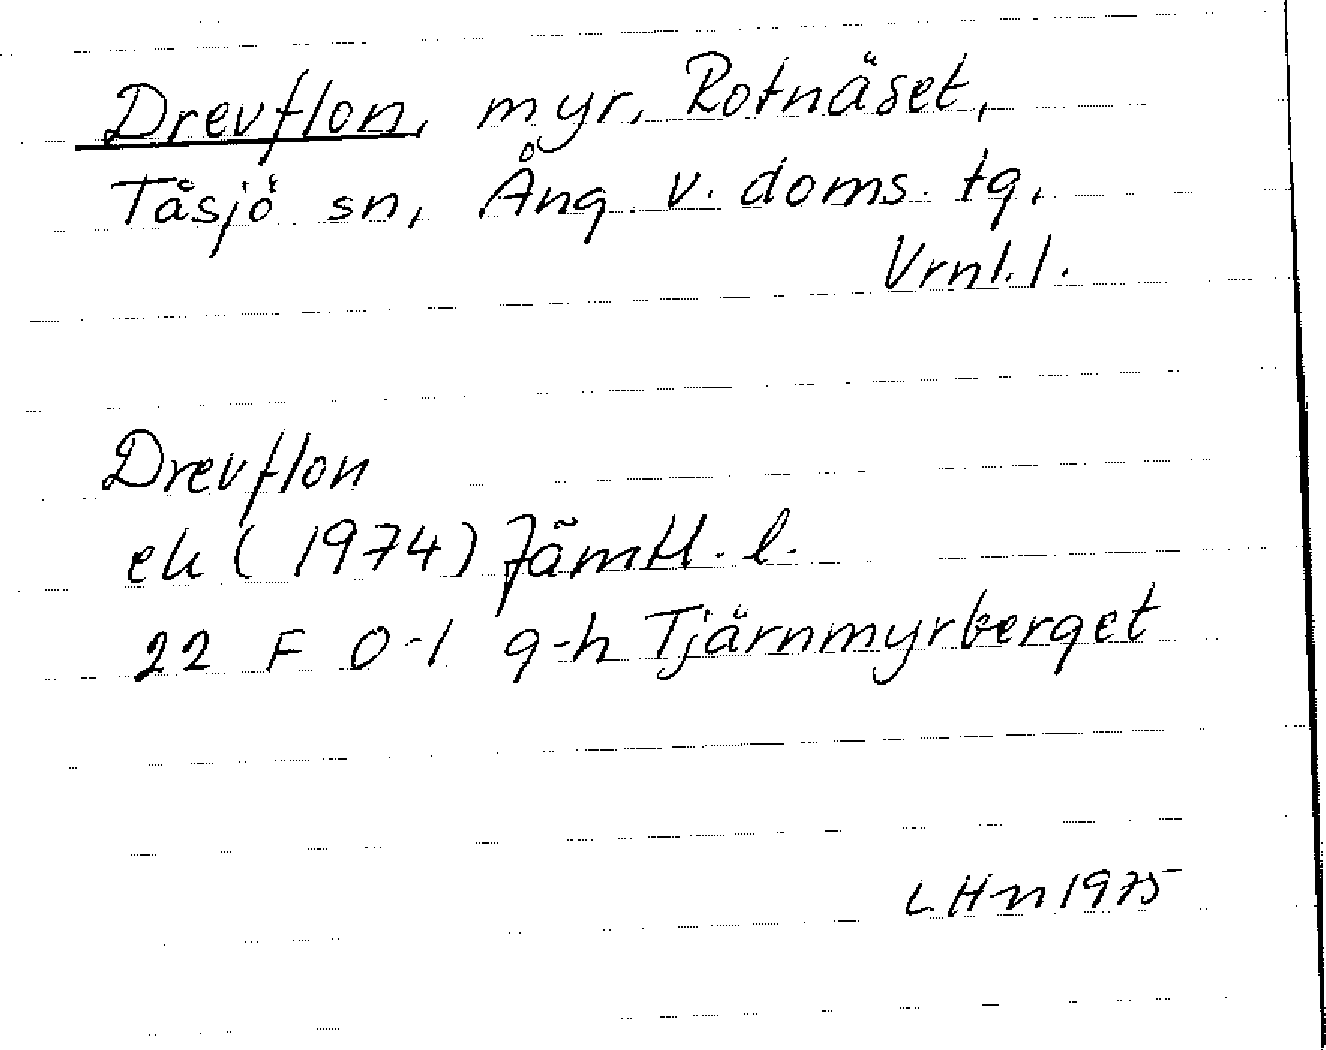 Drevflon, myr, Rotnäset,
Tåsjö sn, Ång. v. doms. tg,
Vrnl. l.
Drevflon
ek (1974) Jämtl. l.
22 F 0-1 g-h Tjärnmyrberget
LHn 1975